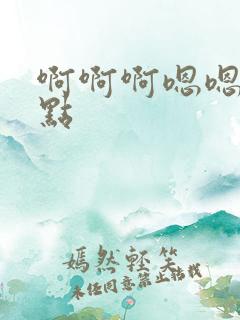 啊啊啊嗯嗯
點
嫣然輕笑
未经同意禁止转载